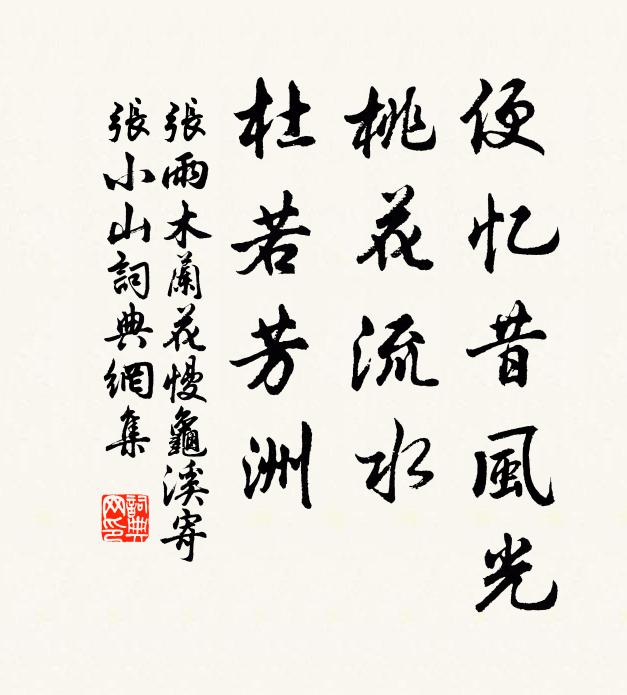 便忆昔風光
桃花流水
杜若芳洲
張雨木蘭花慢龜溪寄
張小山詞典網集
詞典網印